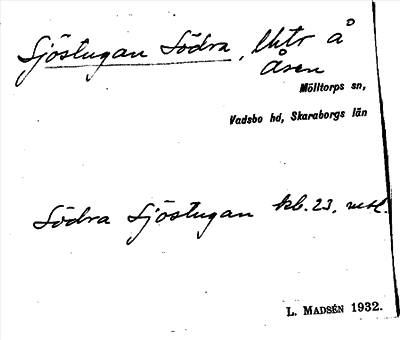 Sjöstugan Södra, lht å
Åsen
Mölltorps sn,
Vadsbo hd, Skaraborgs län
Södra Sjöstugan kb. 23, uttl.
L. MADSÉN 1932.